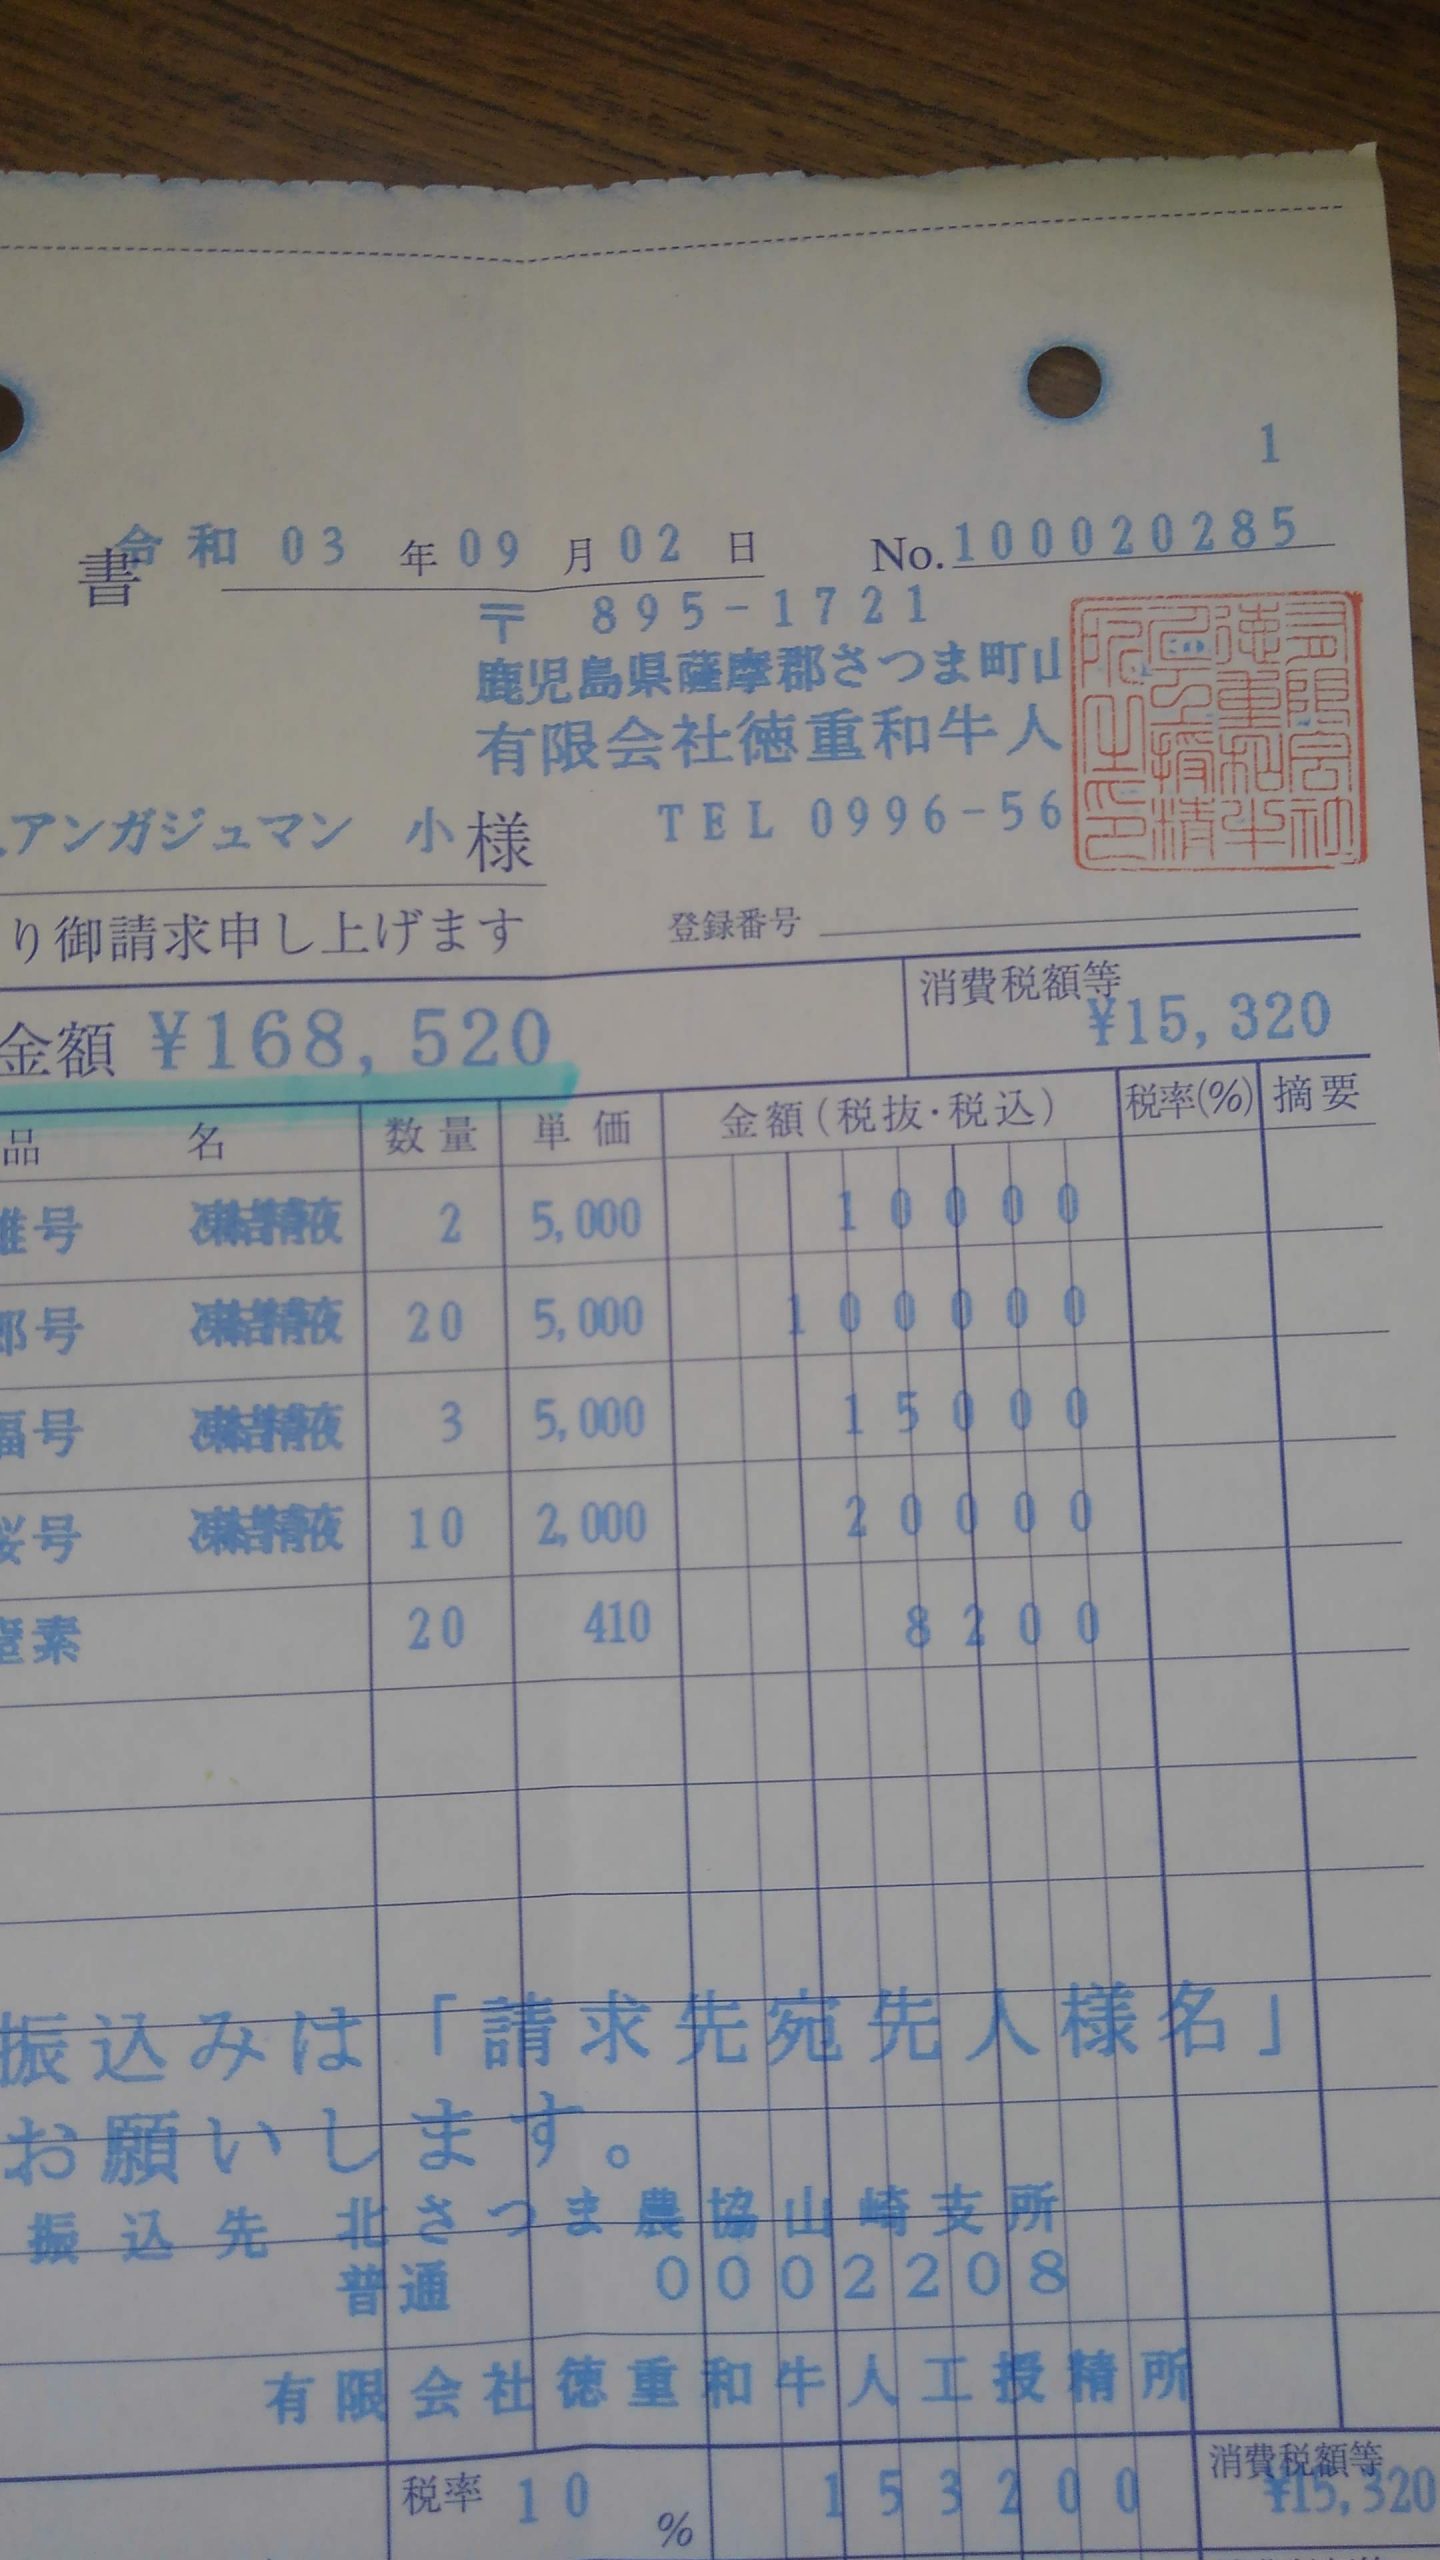 1
書 令和 03 年 09 月 02 日 No. 100020285
〒 895-1721
鹿児島県薩摩郡さつま町山
有限会社徳重和牛人
アンガジュマン 小 様 TEL 0996-56
り御請求申し上げます 登録番号
金額 ¥168,520 消費税額等 ¥15,320
品 名 数量 単価 金額(税抜・税込) 税率(%) 摘要
号 凍結精液 2 5,000 10000
郎号 凍結精液 20 5,000 100000
福号 凍結精液 3 5,000 15000
桜号 凍結精液 10 2,000 20000
窒素 20 410 8200
振込みは「請求先宛先人様名」
お願いします。
振込先 北さつま農協山崎支所
普通 0002208
有限会社徳重和牛人工授精所
税率 10 % 153200 消費税額等 ¥15,320